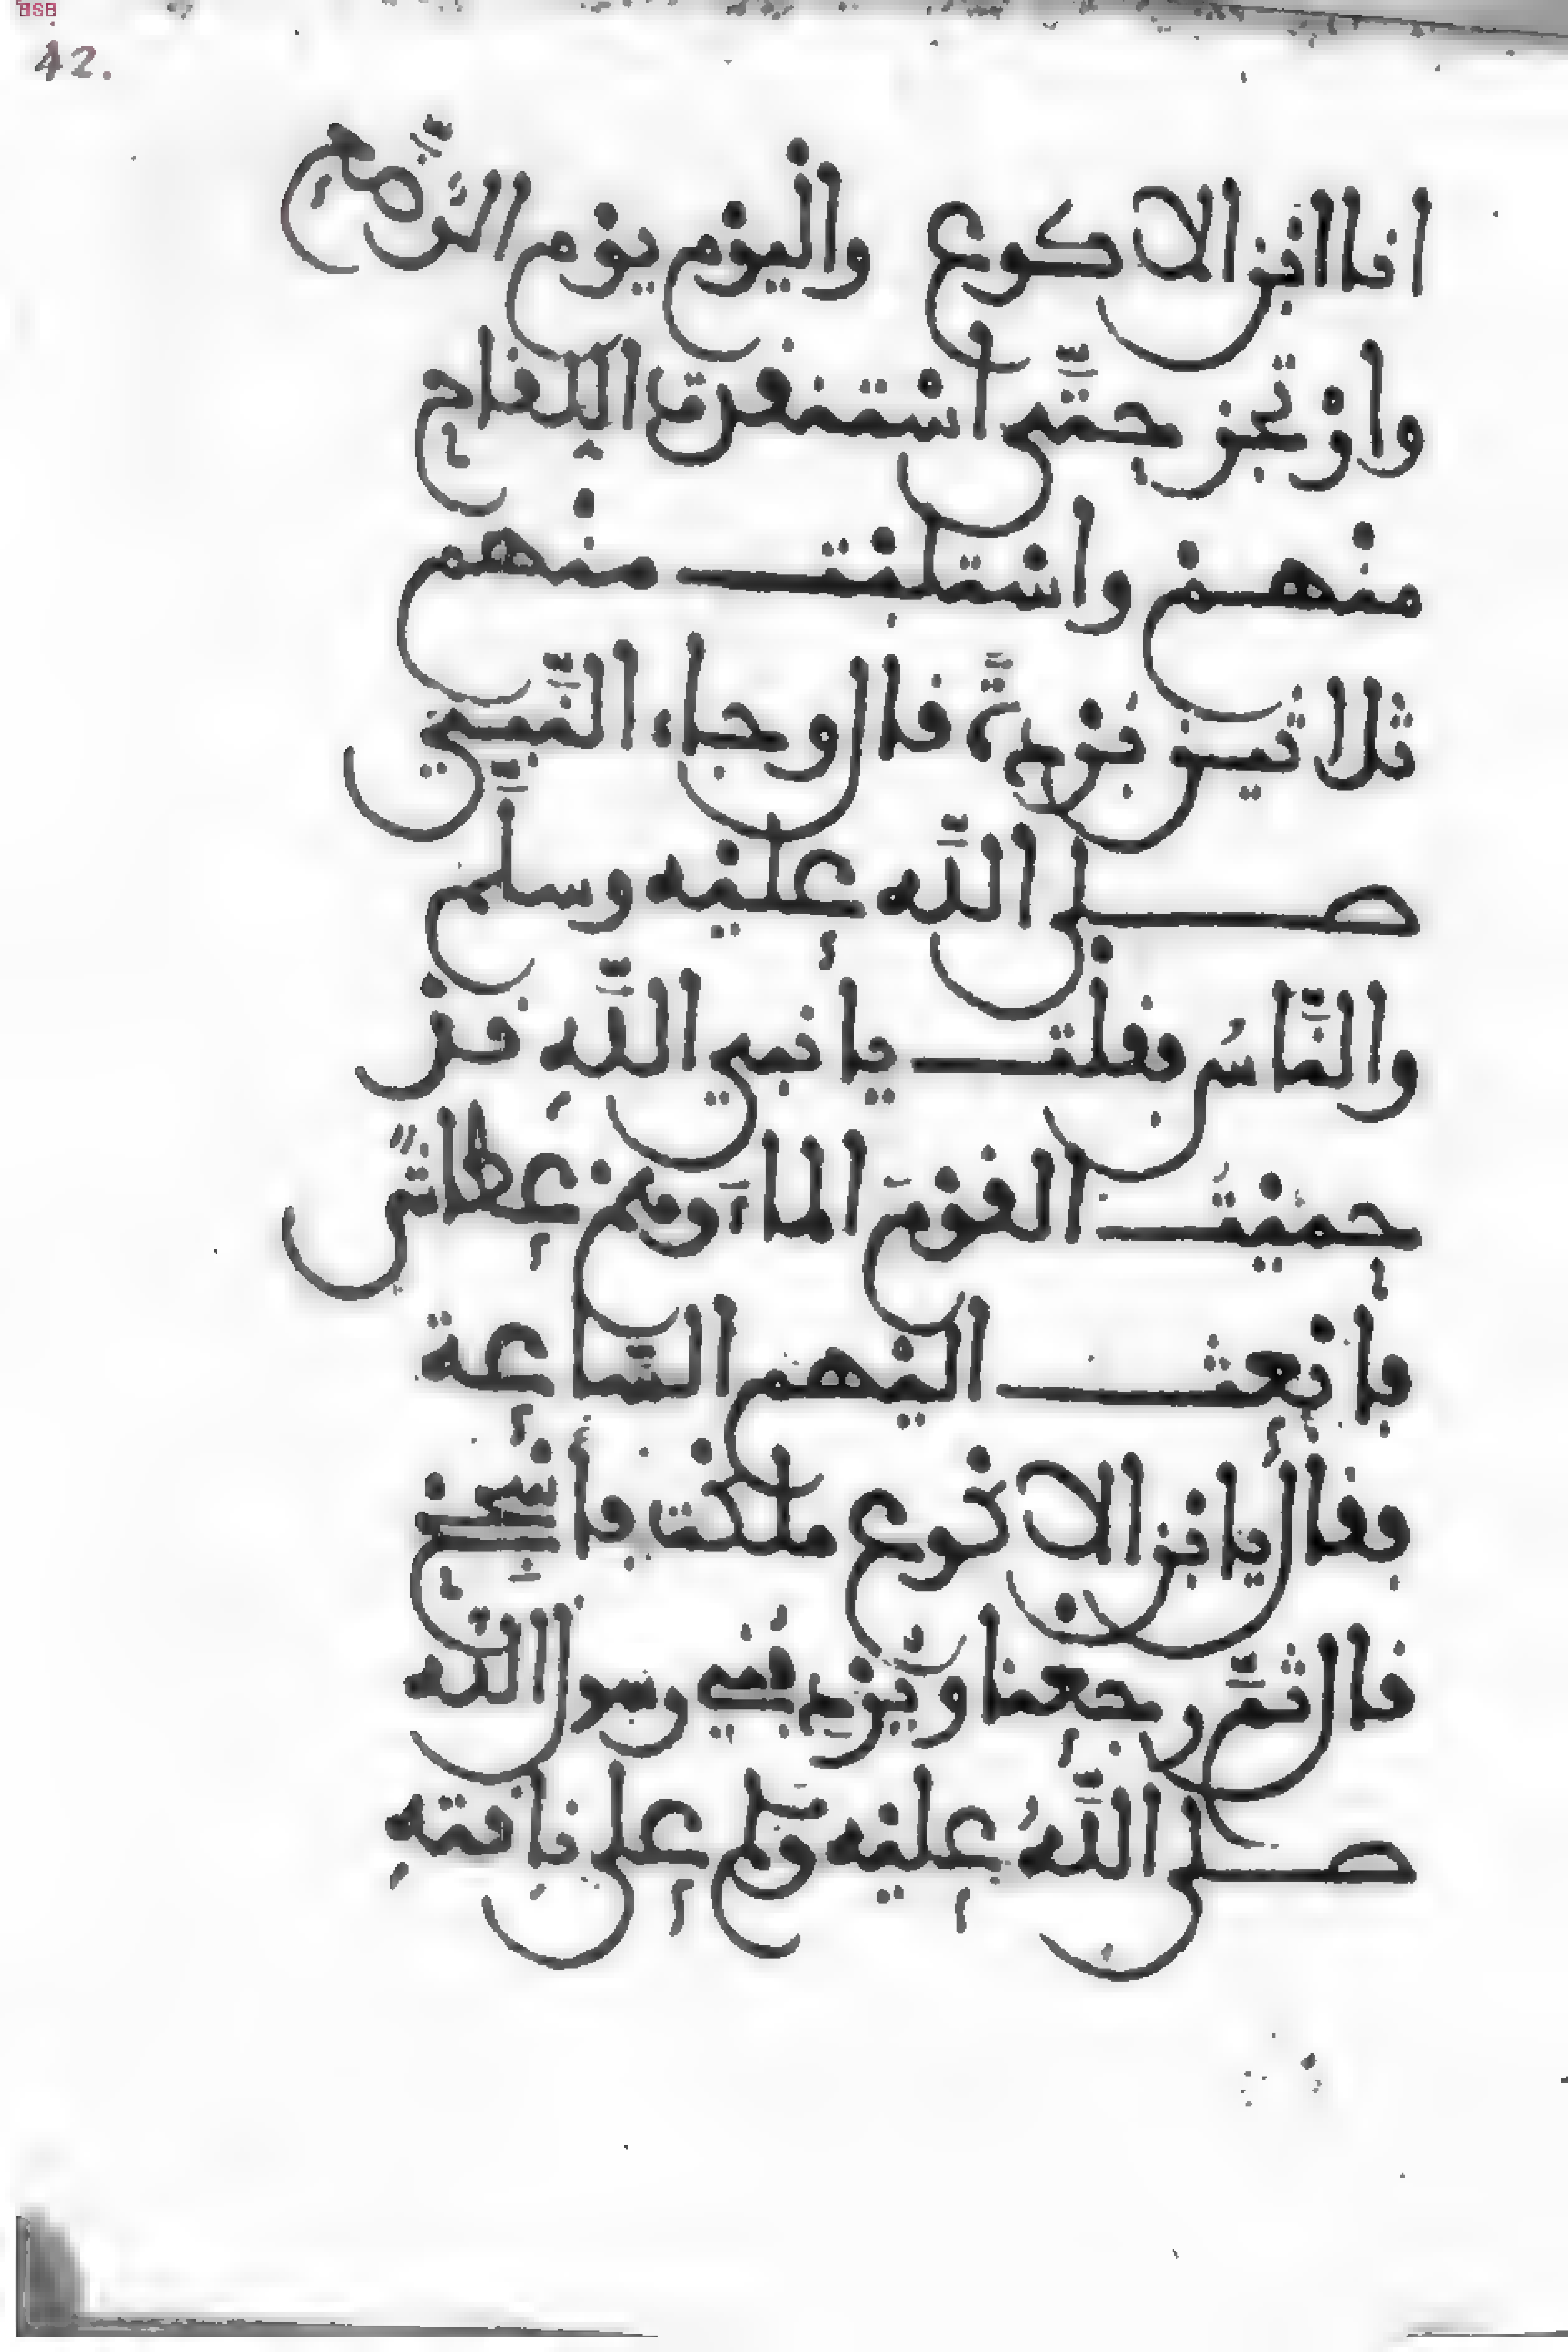 42.
انا ابْن الاكوع والْيوْم يوْم الرُّضع
وارْتجز حتَّى اسْتنفذت اللقاح
منْهمْ واسْتلبْت منْهم
ثلاثين بُرْدةً قال وجاء النَّبي
صلى اللَّه عليْه وسلَّم
والنَّاسُ فقلْت يا نبي اللَّهِ قدْ
حميْتُ القوْمَ الماءَ وهمْ عطاشٌ
فابْعث اليْهم السَّاعة
فقال يا ابْن الاكْوع ملكْت فأسْجح
قال ثمَّ رجعنا ويُرْدِفُني رسول اللَّه
صلى اللَّهُ عليْه وسلم على ناقتهِ